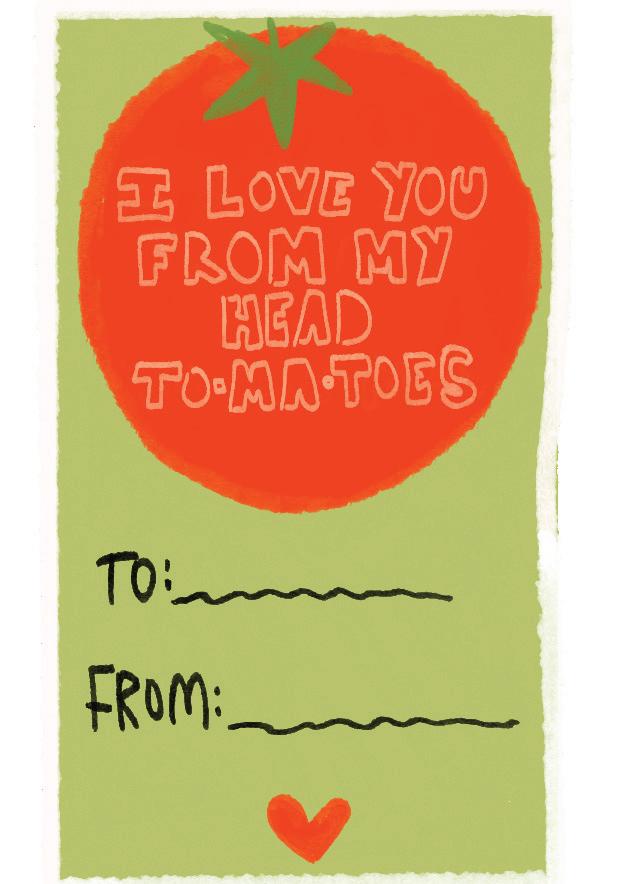 I LOVE YOU
FROM MY
HEAD
TO·MA·TOES
TO:
FROM: